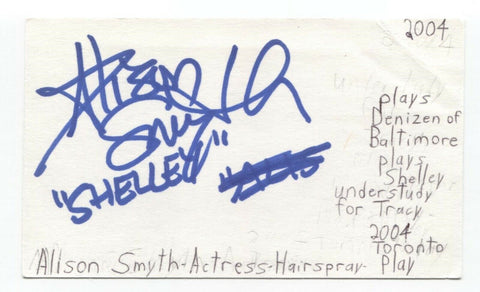 2004
Alison
Smyth
"SHELLEY"
plays
Denizen of
Baltimore
plays
Shelley
understudy
for Tracy
2004
Toronto
Play
Alison Smyth-Actress-Hairspray-